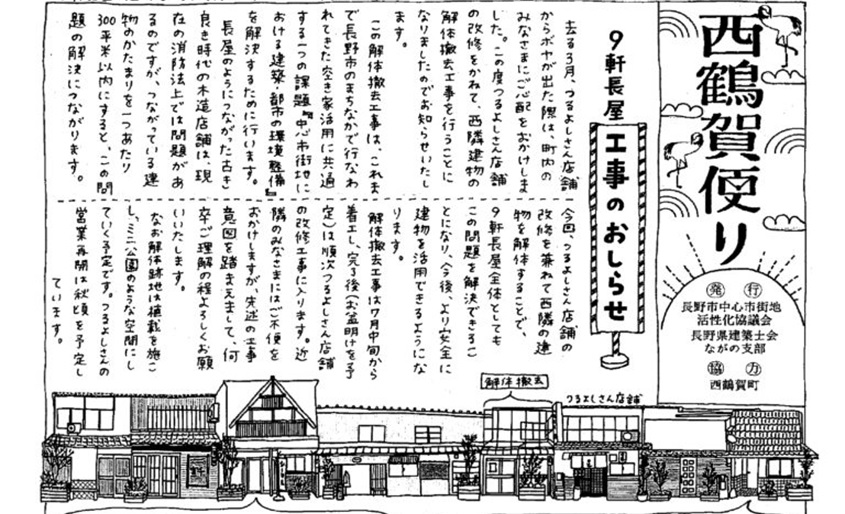 西鶴賀便り
発行
長野市中心市街地
活性化協議会
長野県建築士会
ながの支部
協力
西鶴賀町
9軒長屋
工事のおしらせ
去る3月、つるよしさん店舗
からボヤが出た際は、町内の
みなさまにご心配をおかけしま
した。この度つるよしさん店舗
の改修をかねて、西隣建物の
解体撤去工事を行うことに
なりましたのでお知らせいたし
ます。
この解体撤去工事は、これま
で長野市のまちなかで行なわ
れてきた空き家活用に共通
する一つの課題『中心市街地に
おける建築・都市の環境整備』
を解決するために行います。
長屋のようにつながった古き
良き時代の木造店舗は、現
在の消防法上では問題があ
るのですが、つながっている建
物のかたまりを一つあたり
300平米以内にすると、この問
題の解決につながります。
今回、つるよしさん店舗の
改修を兼ねて西隣の建
物を解体することで、
9軒長屋全体としても
この問題を解決できるこ
とになり、今後、より安全に
建物を活用できるようにな
ります。
解体撤去工事は7月中旬から
着工し、完了後(お盆明けを予
定)は順次つるよしさん店舗
の改修工事に入ります。近
隣のみなさまにはご不便を
おかけしますが、先述の工事
意図を踏まえまして、何
卒ご理解の程よろしくお願
いいたします。
なお解体跡地は植栽を施こ
し、ミニ公園のような空間にし
ていく予定です。つるよしさんの
営業再開は秋頃を予定し
ています。
解体撤去
つるよしさん店舗